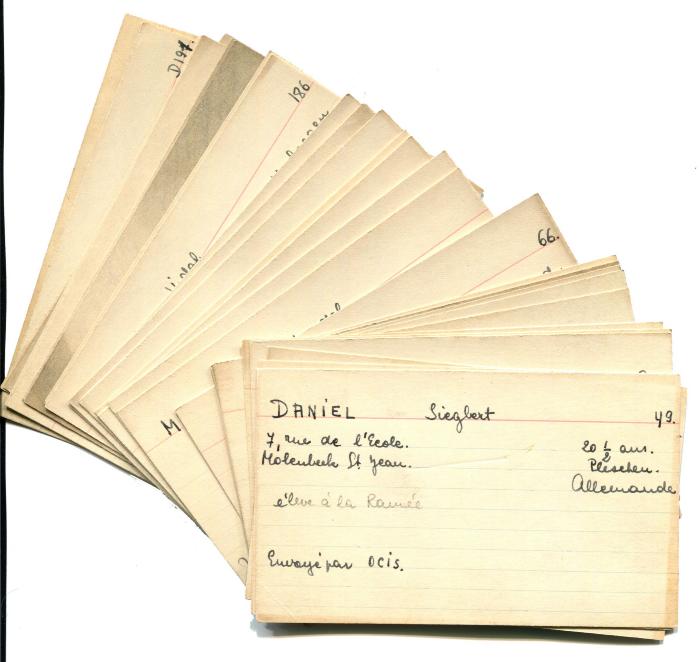 D197.
186
66.
M
DANIEL Siegbert 49.
7, rue de l'Ecole. 20 1/2 ans.
Molenbeek St Jean. Pleschen.
Allemande
élève à la Ramée
Envoyé par OCIS.